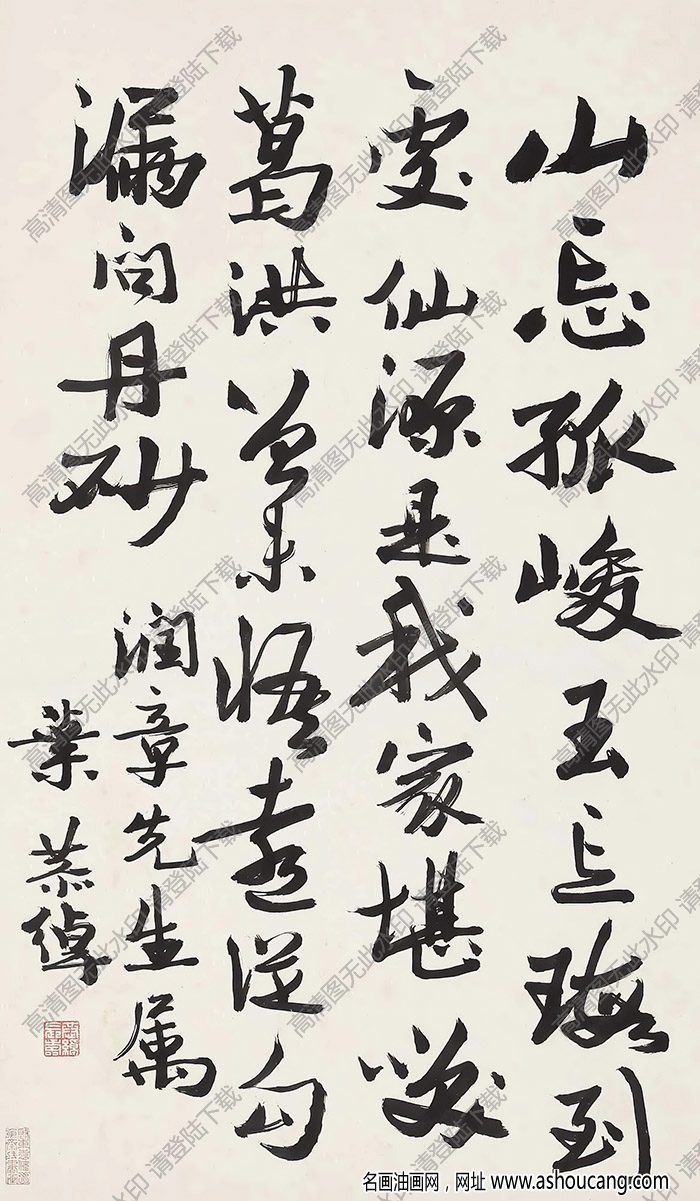 山忘孤峻玉忘瑕到
處仙源是我家堪咲
葛洪曾未悟遠從勾
漏問丹砂
潤章先生属
葉恭綽
高清图无此水印 请登陆下载
名画油画网，网址 www.ashoucang.com